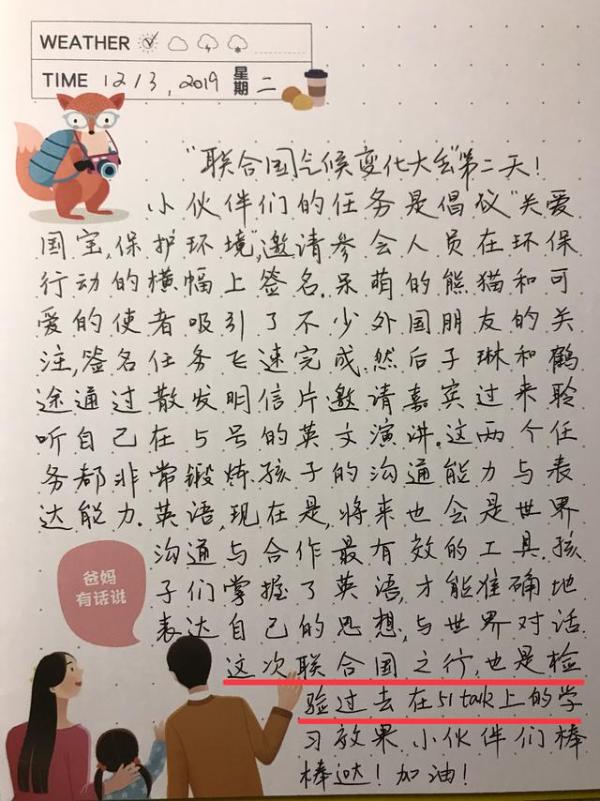 WEATHER
TIME 12/3, 2019 星期 二
"联合国气候变化大会"第二天!
小伙伴们的任务是倡议"关爱
国宝,保护环境",邀请参会人员在环保
行动的横幅上签名.呆萌的熊猫和可
爱的使者吸引了不少外国朋友的关
注,签名任务飞速完成.然后子琳和鹤
途通过散发明信片邀请嘉宾过来聆
听自己在5号的英文演讲.这两个任
务都非常锻炼孩子的沟通能力与表
达能力.英语,现在是,将来也会是世界
沟通与合作最有效的工具.孩
子们掌握了英语,才能准确地
表达自己的思想,与世界对话.
这次联合国之行,也是检
验过去在51talk上的学
习效果.小伙伴们棒
棒哒!加油!
爸妈
有话说